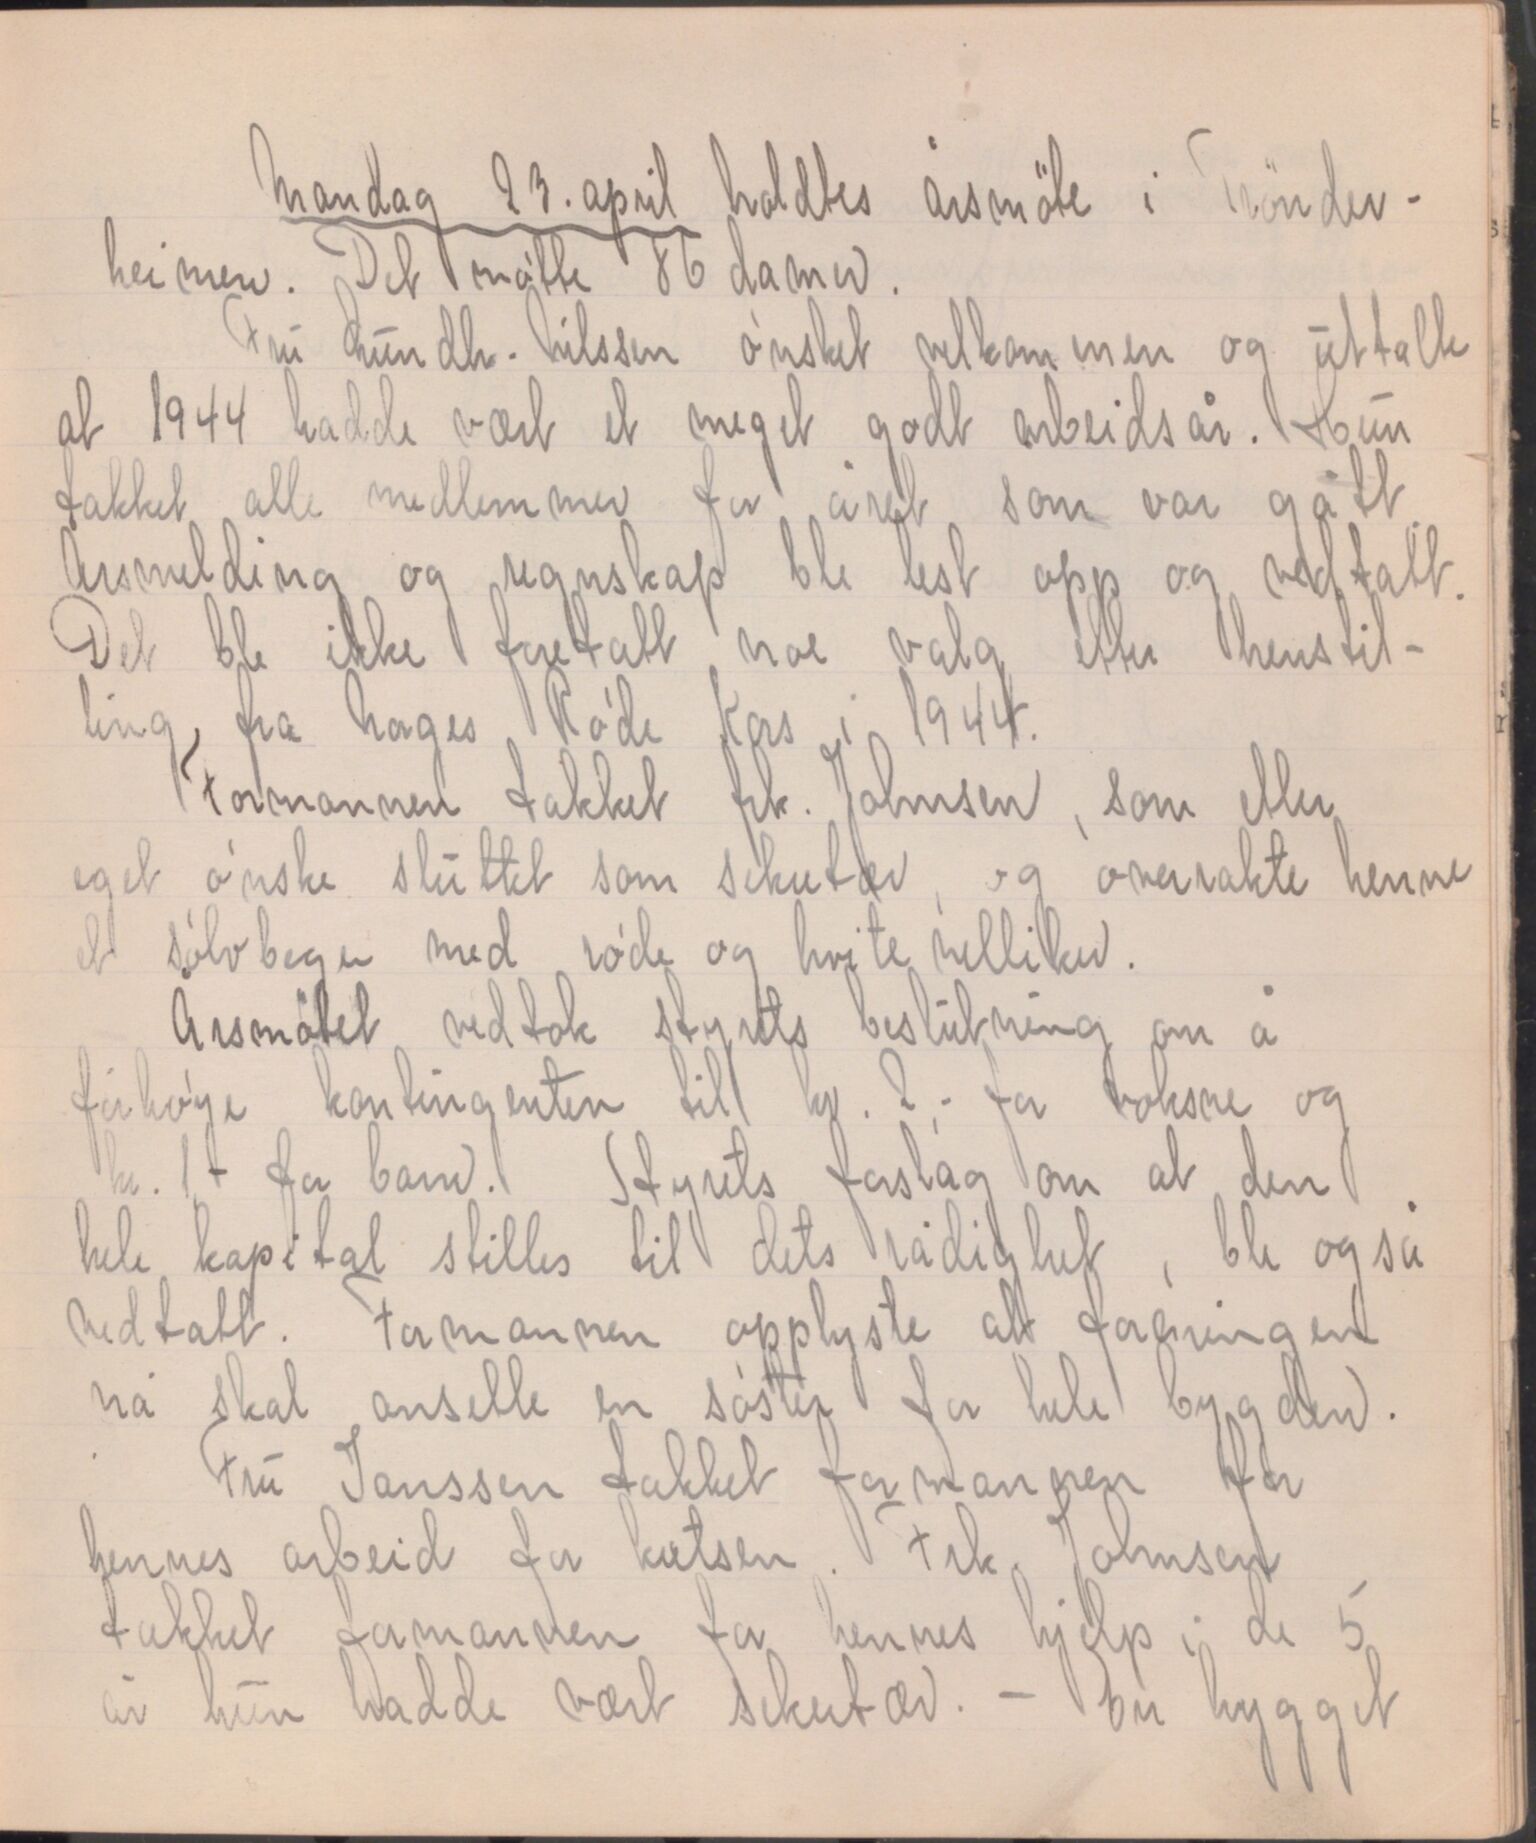 Mandag 23. april holdtes årsmöte i Trönder-
heimen. Det møtte 86 damer.
Fru Lundh-Nilssen ønsket velkommen og uttalte
at 1944 hadde vært et meget godt arbeidsår. Hun
takket alle medlemmer for året som var gått.
Årsmelding og regnskap ble lest opp og vedtatt.
Det ble ikke foretatt noe valg etter henstil-
ling fra Norges Røde Kors i 1944.
Formannen takket frk. Johnsen, som etter
eget ønske sluttet som sekretær, og overrakte henne
et sølvbeger med røde og hvite nelliker.
Årsmötet vedtok styrets beslutning om å
forhøye kontingenten til kr. 2,- for voksne og
kr. 1,- for barn. Styrets forslag om at den
hele kapital stilles til dets rådighet, ble også
vedtatt. Formannen opplyste at foreningen
nå skal ansette en søster for hele bygden.
Fru Janssen takket formannen for
hennes arbeid for kretsen. Frk. Johnsen
takket formannen for hennes hjelp i de 5
år hun hadde vært sekretær. - En hygget